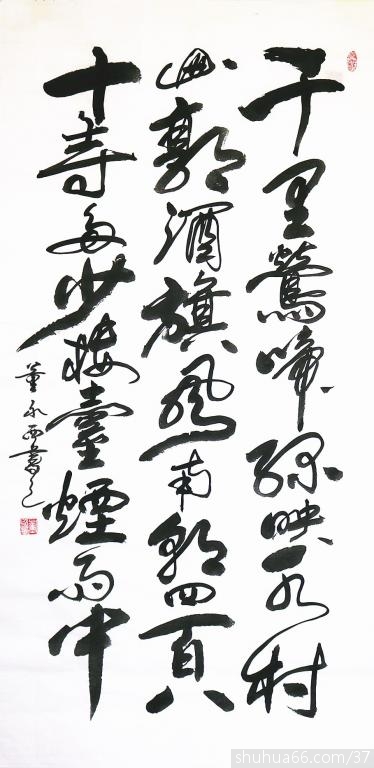 千里鶯啼綠映水村
山郭酒旗風南朝四百八
十寺多少樓臺煙雨中
董永西書
shuhua66.com/37